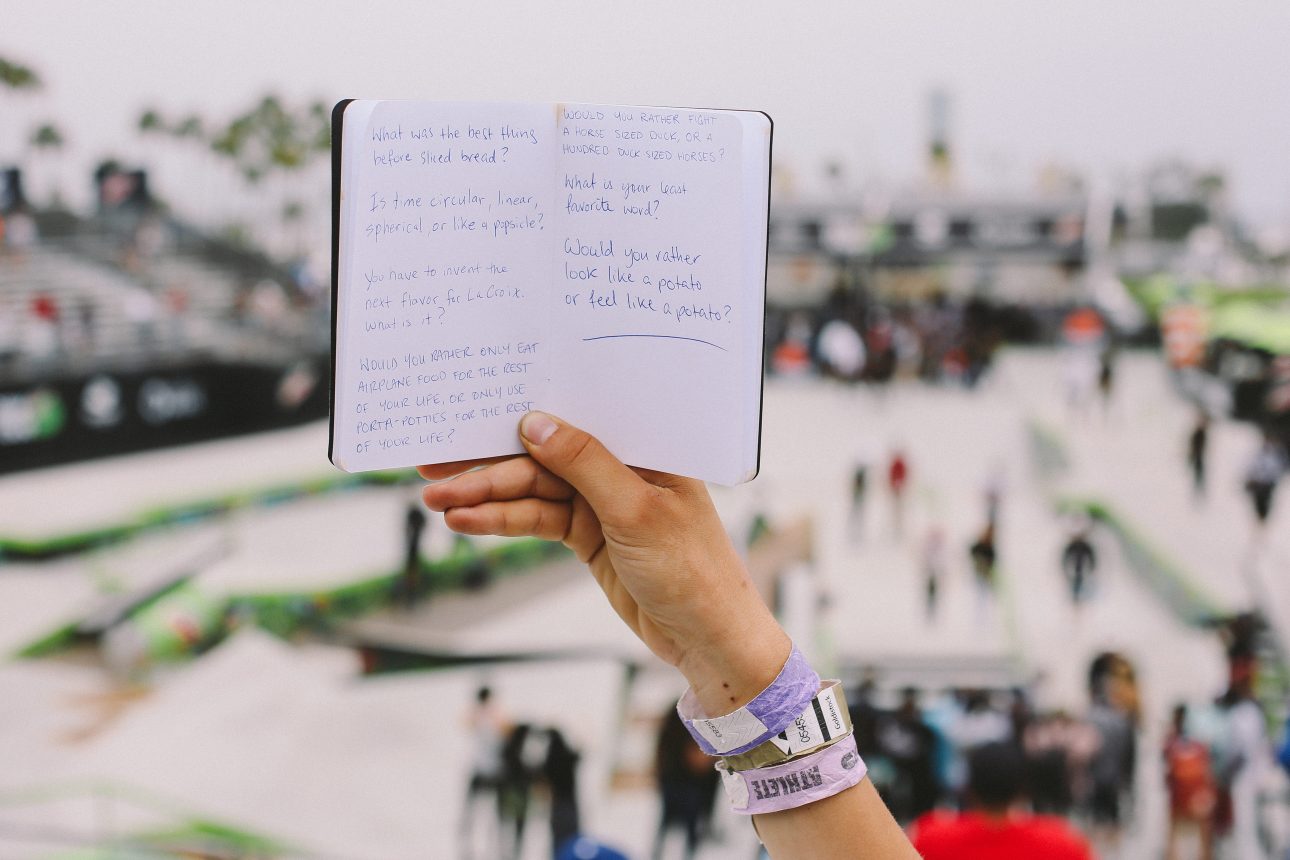 What was the best thing
before sliced bread?
Is time circular, linear,
spherical, or like a popsicle?
You have to invent the
next flavor for LaCroix.
What is it?
WOULD YOU RATHER ONLY EAT
AIRPLANE FOOD FOR THE REST
OF YOUR LIFE, OR ONLY USE
PORTA-POTTIES FOR THE REST
OF YOUR LIFE?
WOULD YOU RATHER FIGHT
A HORSE SIZED DUCK, OR A
HUNDRED DUCK SIZED HORSES?
What is your least
favorite word?
Would you rather
look like a potato
or feel like a potato?
ATHLETE